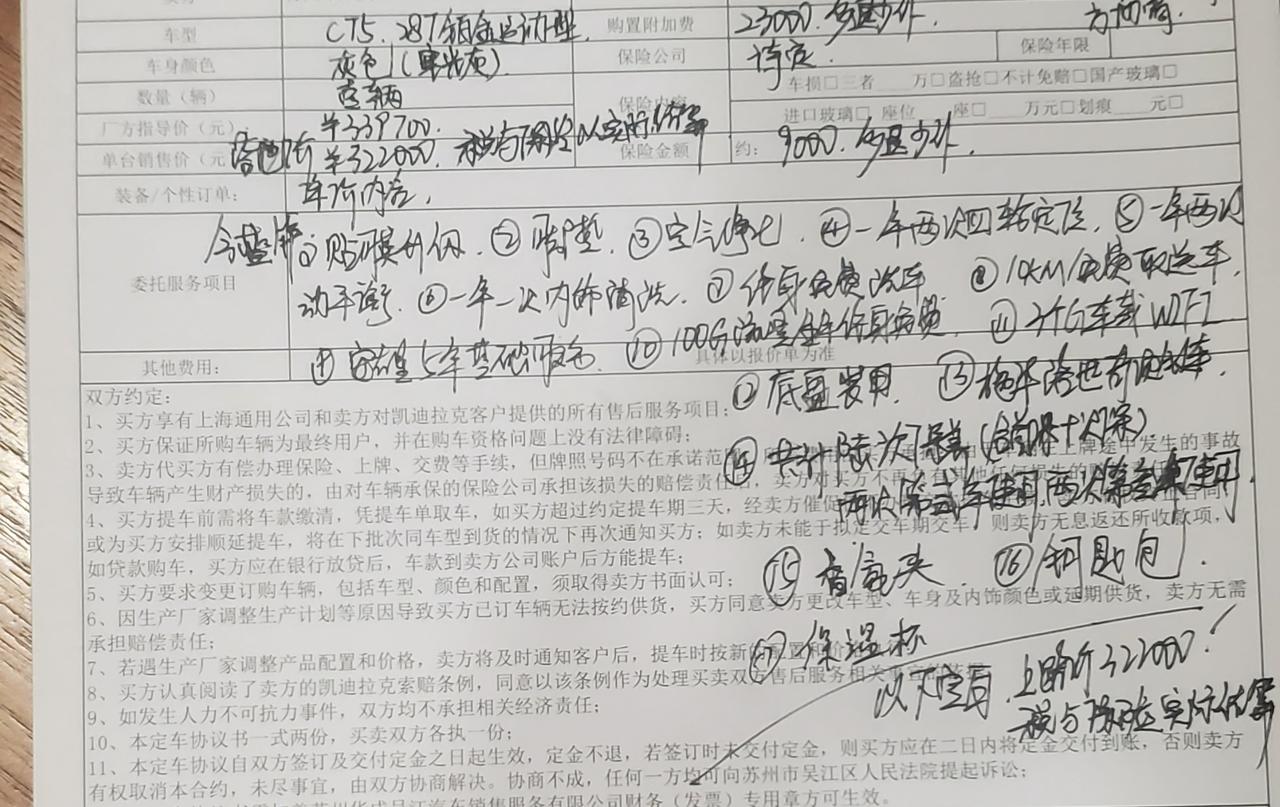 车型 CT5. 28T铂金运动型. 购置附加费 23000. 多退少补
车身颜色 灰色 保险公司 待定 保险年限
数量（辆） 壹辆 保险内容 车损□三者 万□盗抢□不计免赔□国产玻璃□
厂方指导价（元） ¥339700. 进口玻璃□ 座位 座□ 万元□划痕 元□
单台销售价（元 落地价 ¥322000. 税与保险以实际结算 保险金额 约: 9000. 多退少补.
装备/个性订单: 车价内含.
委托服务项目 ①贴膜升级. ②脚垫 ③空气净化 ④一年两次四轮定位. ⑤一年两次
动平衡 ⑥一年一次内饰清洗. ⑦终身免费洗车 ⑧10KM免费取送车.
其他费用: ⑨安吉星5年基础服务 ⑩100G流量全年终身免费 ⑪ 车载WIFI
具体以报价单为准
双方约定: ⑫底盘装甲. ⑬
1、买方享有上海通用公司和卖方对凯迪拉克客户提供的所有售后服务项目;
2、买方保证所购车辆为最终用户，并在购车资格问题上没有法律障碍;
⑭共计陆次保养
3、卖方代买方有偿办理保险、上牌、交费等手续，但牌照号码不在承诺范 上牌途中发生的事故
导致车辆产生财产损失的，由对车辆承保的保险公司承担该损失的赔偿责任 卖方对买方不再 其他任何损失的
4、买方提车前需将车款缴清，凭提车单取车，如买方超过约定提车期三天，经卖方催促
或为买方安排顺延提车，将在下批次同车型到货的情况下再次通知买方；如卖方未能于拟定交车期交车，则卖方无息返还所收款项，
如贷款购车，买方应在银行放贷后，车款到卖方公司账户后方能提车;
5、买方要求变更订购车辆，包括车型、颜色和配置，须取得卖方书面认可;
⑮香氛夹 ⑯钥匙包
6、因生产厂家调整生产计划等原因导致买方已订车辆无法按约供货，买方同意卖方更改车型、车身及内饰颜色或延期供货，卖方无需
承担赔偿责任;
⑰保温杯
7、若遇生产厂家调整产品配置和价格，卖方将及时通知客户后，提车时按新的配置和价
8、买方认真阅读了卖方的凯迪拉克索赔条例，同意以该条例作为处理买卖双方售后服务相关事宜的依据
以下空白. 上路价322000!
税与保险实际结算
9、如发生人力不可抗力事件，双方均不承担相关经济责任;
10、本定车协议书一式两份，买卖双方各执一份;
11、本定车协议自双方签订及交付定金之日起生效，定金不退，若签订时未交付定金，则买方应在二日内将定金交付到账，否则卖方
有权取消本合约，未尽事宜，由双方协商解决。协商不成，任何一方均可向苏州市吴江区人民法院提起诉讼;
汽车销售服务有限公司财务（发票）专用章方可生效。